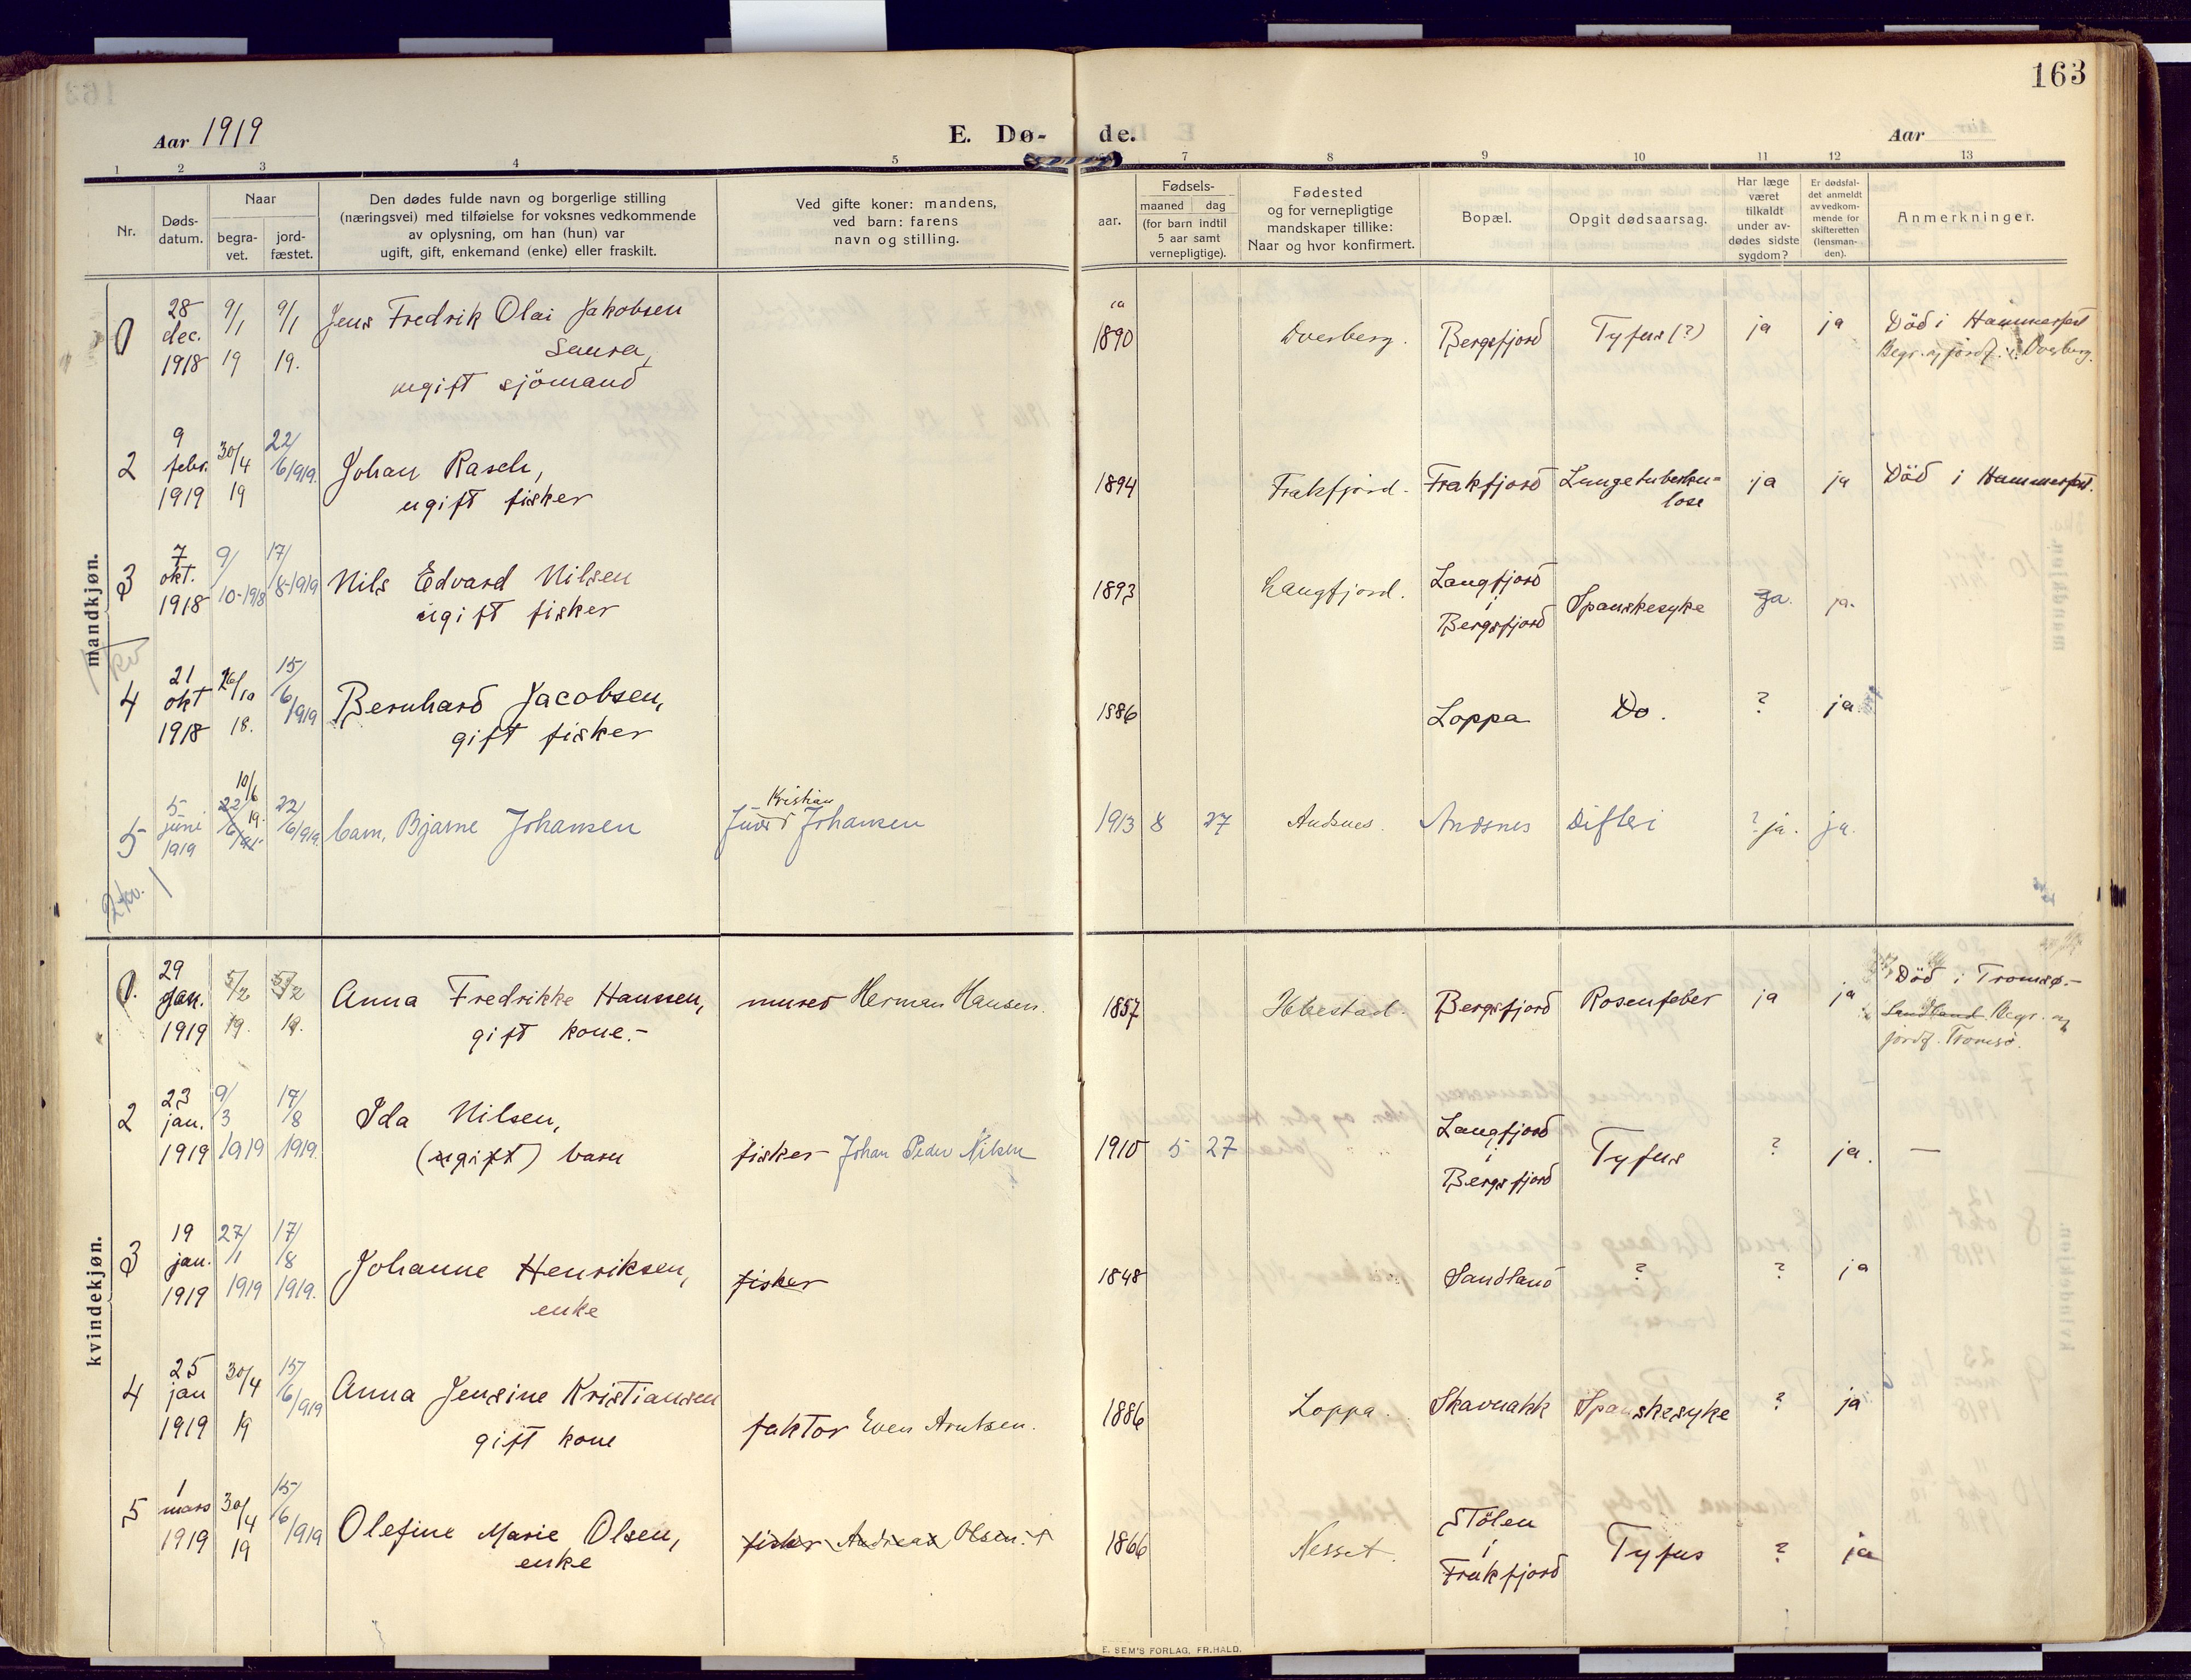 163
Aar 1919
E. Dø- de.
Aar
1 2 3 4 5 7 8 9 10 11 12 13
Nr.
Døds-
datum.
Naar
begra-
vet.
jord-
fæstet.
Den dødes fulde navn og borgerlige stilling
(næringsvei) med tilføielse for voksnes vedkommende
av oplysning, om han (hun) var
ugift, gift, enkemand (enke) eller fraskilt.
Ved gifte koner: mandens,
ved barn: farens
navn og stilling.
aar.
Fødsels-
maaned dag
(for barn indtil
5 aar samt
vernepligtige).
Fødested
og for vernepligtige
mandskaper tillike:
Naar og hvor konfirmert.
Bopæl.
Opgit dødsaarsag.
Har læge
været
tilkaldt
under av-
dødes sidste
sygdom?
Er dødsfal-
det anmeldt
av vedkom-
mende for
skifteretten
(lensman-
den).
Anmerkninger.
mandkjøn.
1 28 dec. 1918 9/1 19 9/1 19. Jens Fredrik Olai Jakobsen
Saura,
ugift sjömand
ca 1890 Dverberg. Bergsfjord Tyfus (?) ja ja Död i Hammerfest
Begr. og jordf. i Dverberg.
2 9 febr. 1919 30/4 19 22/6 1919. Johan Rasch,
ugift fisker
1894 Frakfjord. Frakfjord Lungetuberku=
lose ja ja Död i Hammerfest.
3 7 okt. 1918 9/10-1918 17/8-1919 Nils Edvard Nilsen
ugift fisker
1893 Langfjord. Langfjord
i
Bergsfjord Spanskesyke ja. ja.
kv
4 21 okt 1918 26/10 18. 15/6 1919 Bernhard Jacobsen,
gift fisker
1886 Loppa Do. ? ja
5 5 juni 1919 10/6 19. 22/6 1919. barn, Bjarne Johansen
Kristian
Johansen
1913 8 27 Andsnes. Andsnes Difteri ? ja. ja.
2 kv.
kvindekjøn.
1. 29 jan. 1919 5/2 19. 5/2 19. Anna Fredrikke Hansen,
gift kone.-
murer Herman Hansen.
1857 Ibestad. Bergsfjord Rosenfeber ja ja Död i Tromsø.-
Sandland Begr. og
jordf. Tromsö.
2 23 jan. 1919 9/3 1919 17/8 1919. Ida Nilsen,
(ugift) barn
fisker Johan Peder Nilsen
1910 5 27 Langfjord
i
Bergsfjord Tyfus ? ja. —
3 19 jan. 1919 27/1 1919 17/8 1919. Johanne Henriksen,
enke
fisker
1848 Sandland ? ? ja
4 25 jan 1919 30/4 19 15/6 1919 Anna Jensine Kristiansen
gift kone
faktor Even Arntsen.
1886 Loppa. Skavnakk Spanskesyke ? ja
5 1 mars 1919 30/4 19 15/6 1919 Olefine Marie Olsen,
enke
fisker Andreas Olsen. †
1866 Nesset. Stölen
i
Frakfjord Tyfus ? ja
E. SEM'S FORLAG, FR.HALD.